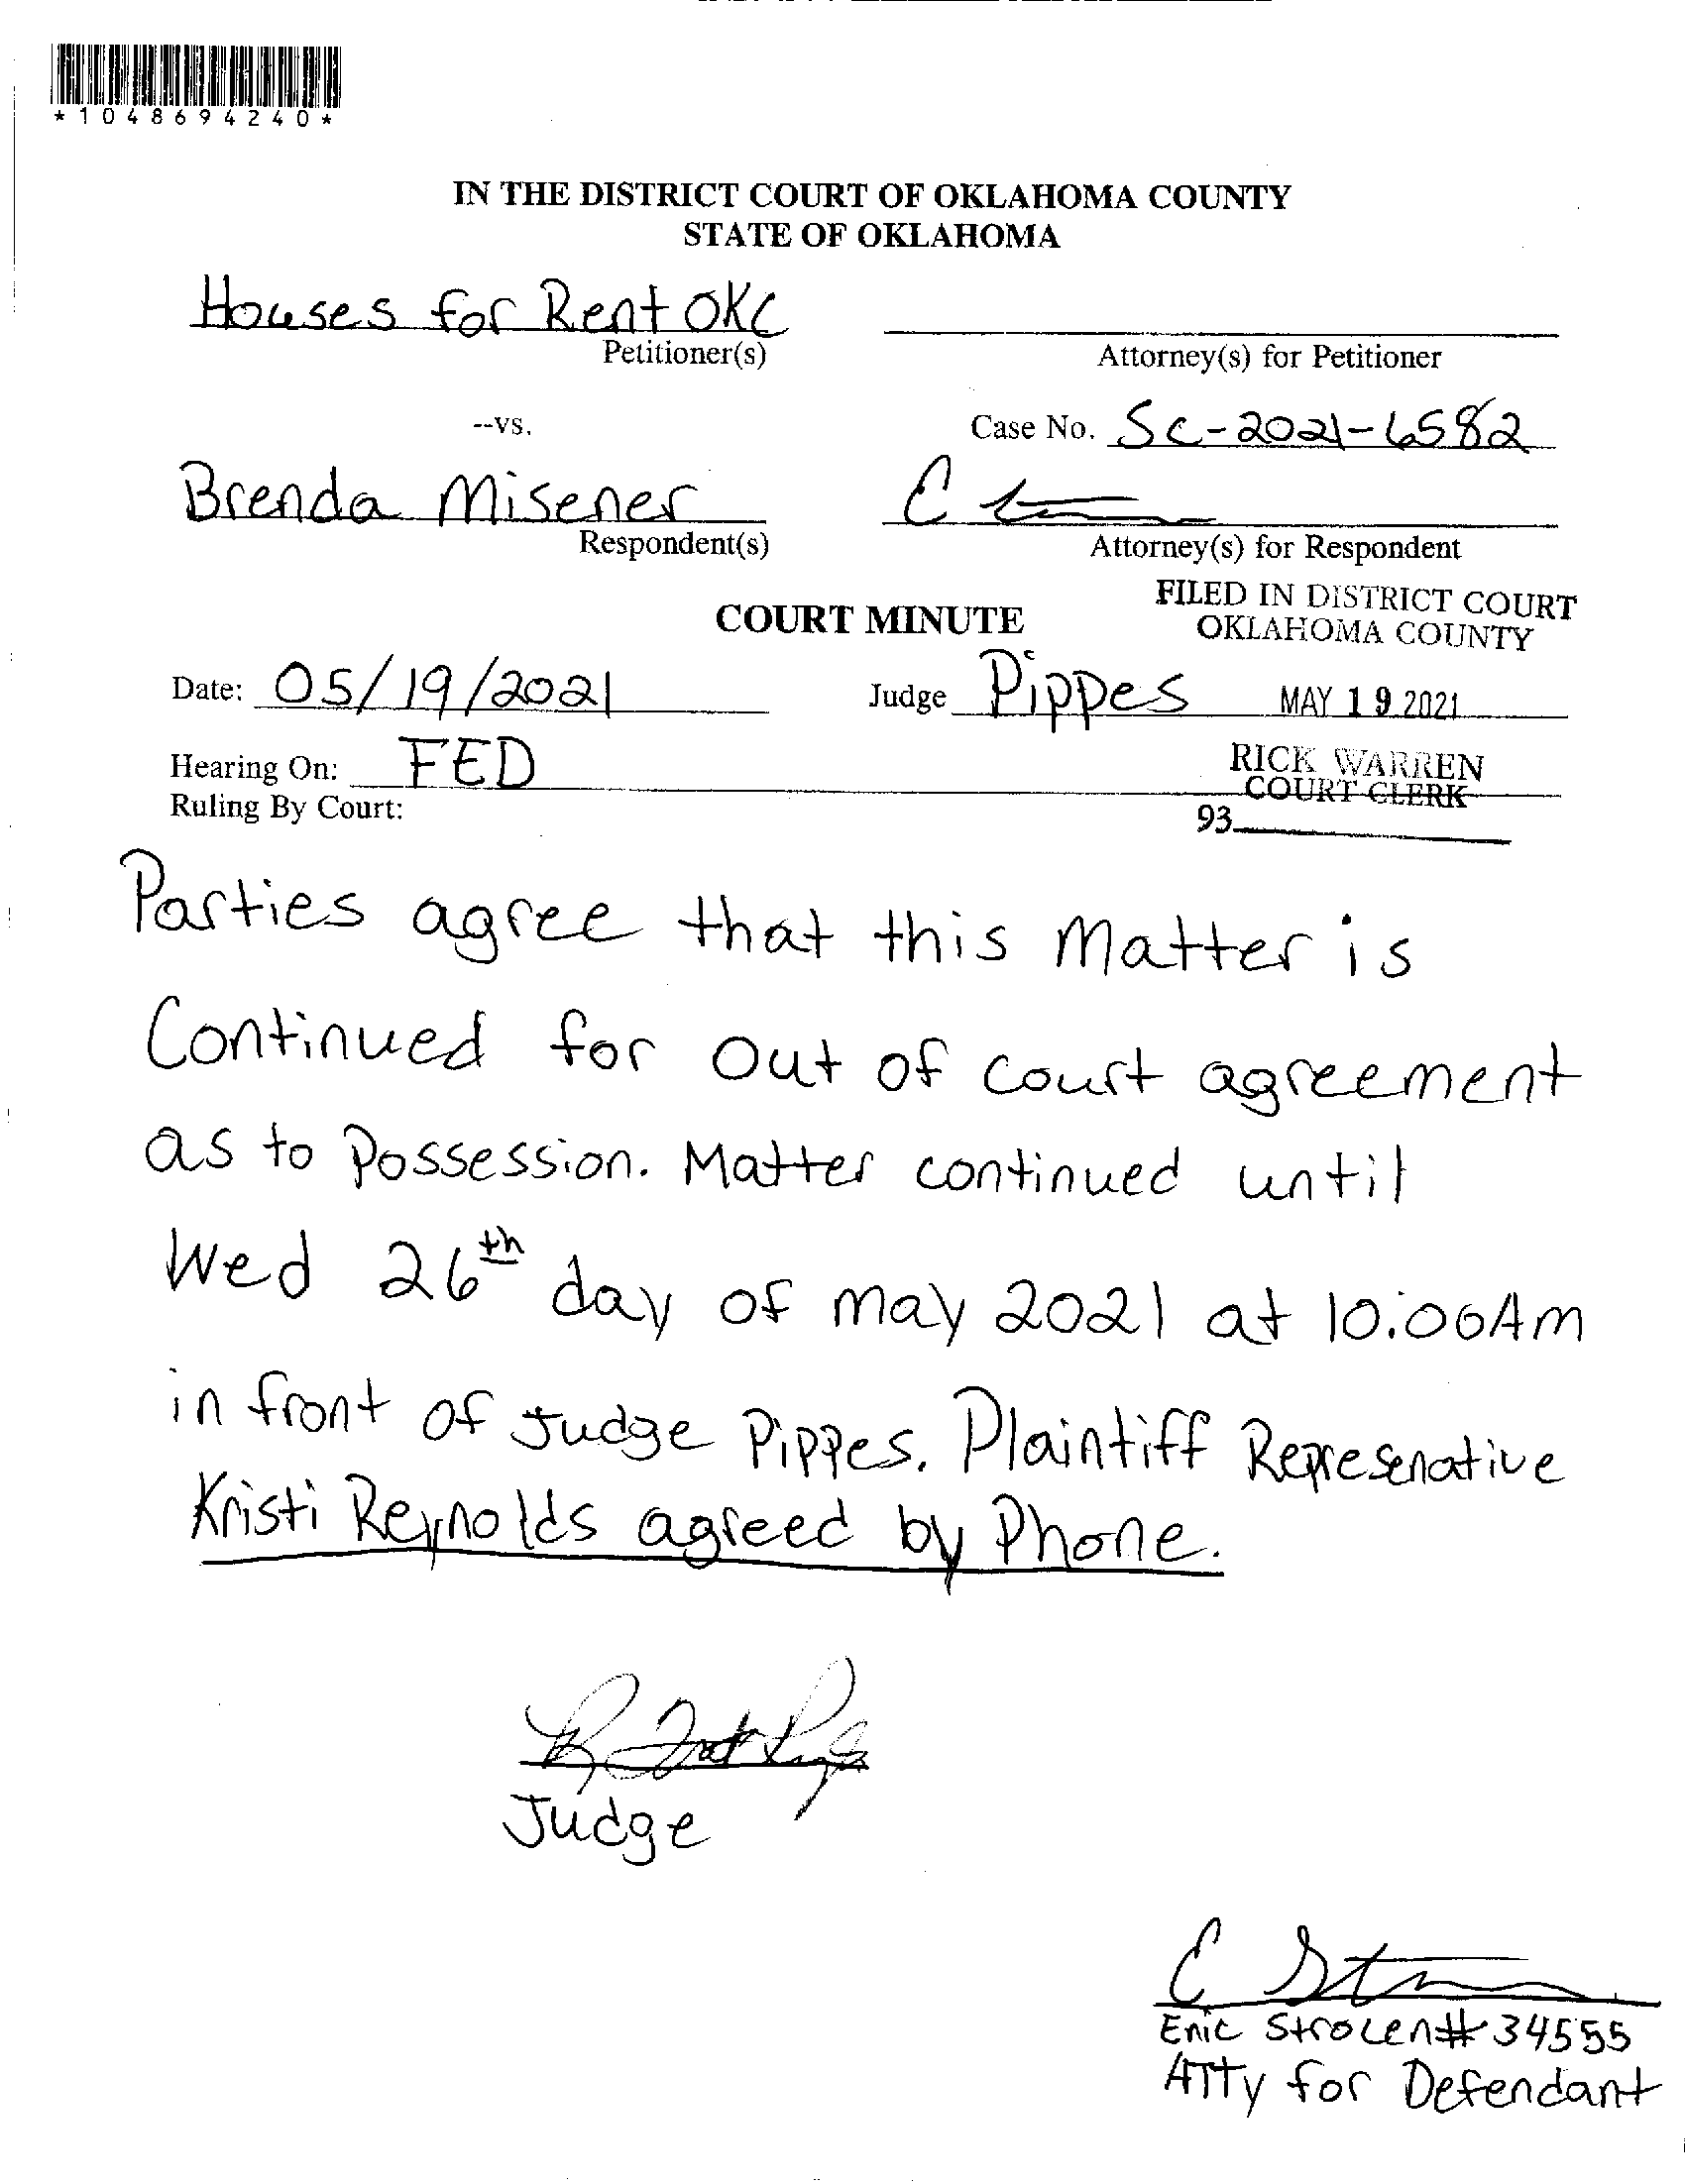 *1048694240*
IN THE DISTRICT COURT OF OKLAHOMA COUNTY
STATE OF OKLAHOMA
Houses for Rent OKC
Petitioner(s)
Attorney(s) for Petitioner
--vs.
Case No. SC-2021-6582
Brenda Misener
Respondent(s)
Attorney(s) for Respondent
FILED IN DISTRICT COURT
OKLAHOMA COUNTY
COURT MINUTE
Date: 05/19/2021
Judge Pippes
MAY 19 2021
Hearing On: FED
RICK WARREN
COURT CLERK
Ruling By Court:
93
Parties agree that this Matter is
Continued for Out of Court agreement
as to Possession. Matter continued until
Wed 26th day of may 2021 at 10:00Am
in front of Judge Pippes. Plaintiff Represenative
Kristi Reynolds agreed by Phone.
Judge
Eric Strocen # 34555
ATTy for Defendant